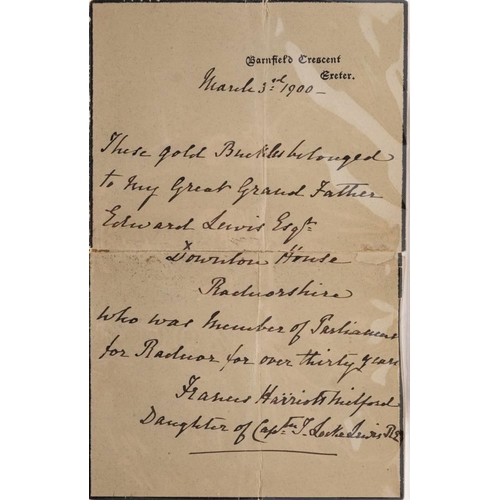 Barnfield Crescent
Exeter.
March 3rd 1900 -
These gold Buckles belonged
to my Great Grand Father
Edward Lewis Esqr
x
Downton House
Radnorshire
who was Member of Parliament
for Radnor for over thirty years
Frances Harriott Milford
Daughter of Captn T. Locke Lewis R.E